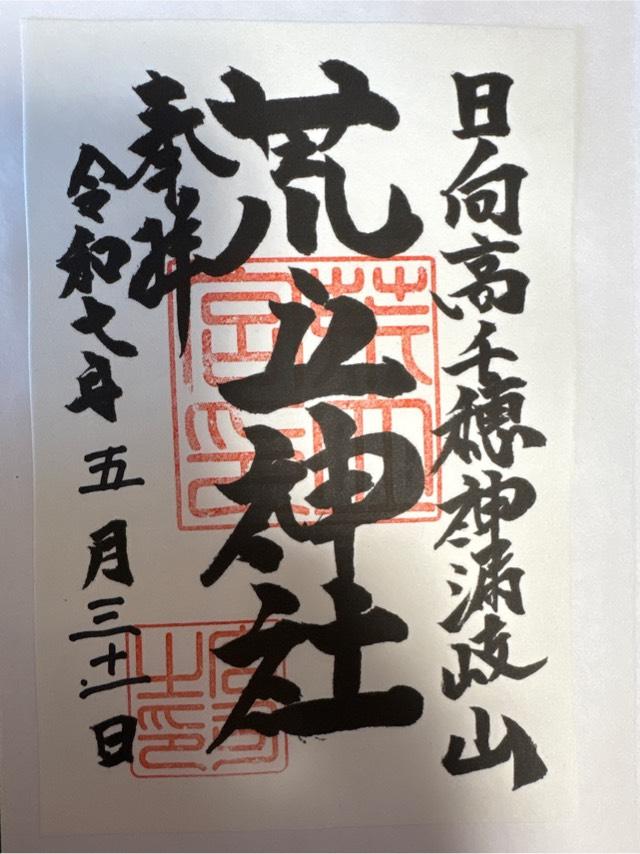 日向高千穂神漏岐山
荒立神社
奉拝
令和七年五月三十一日
宮司之印